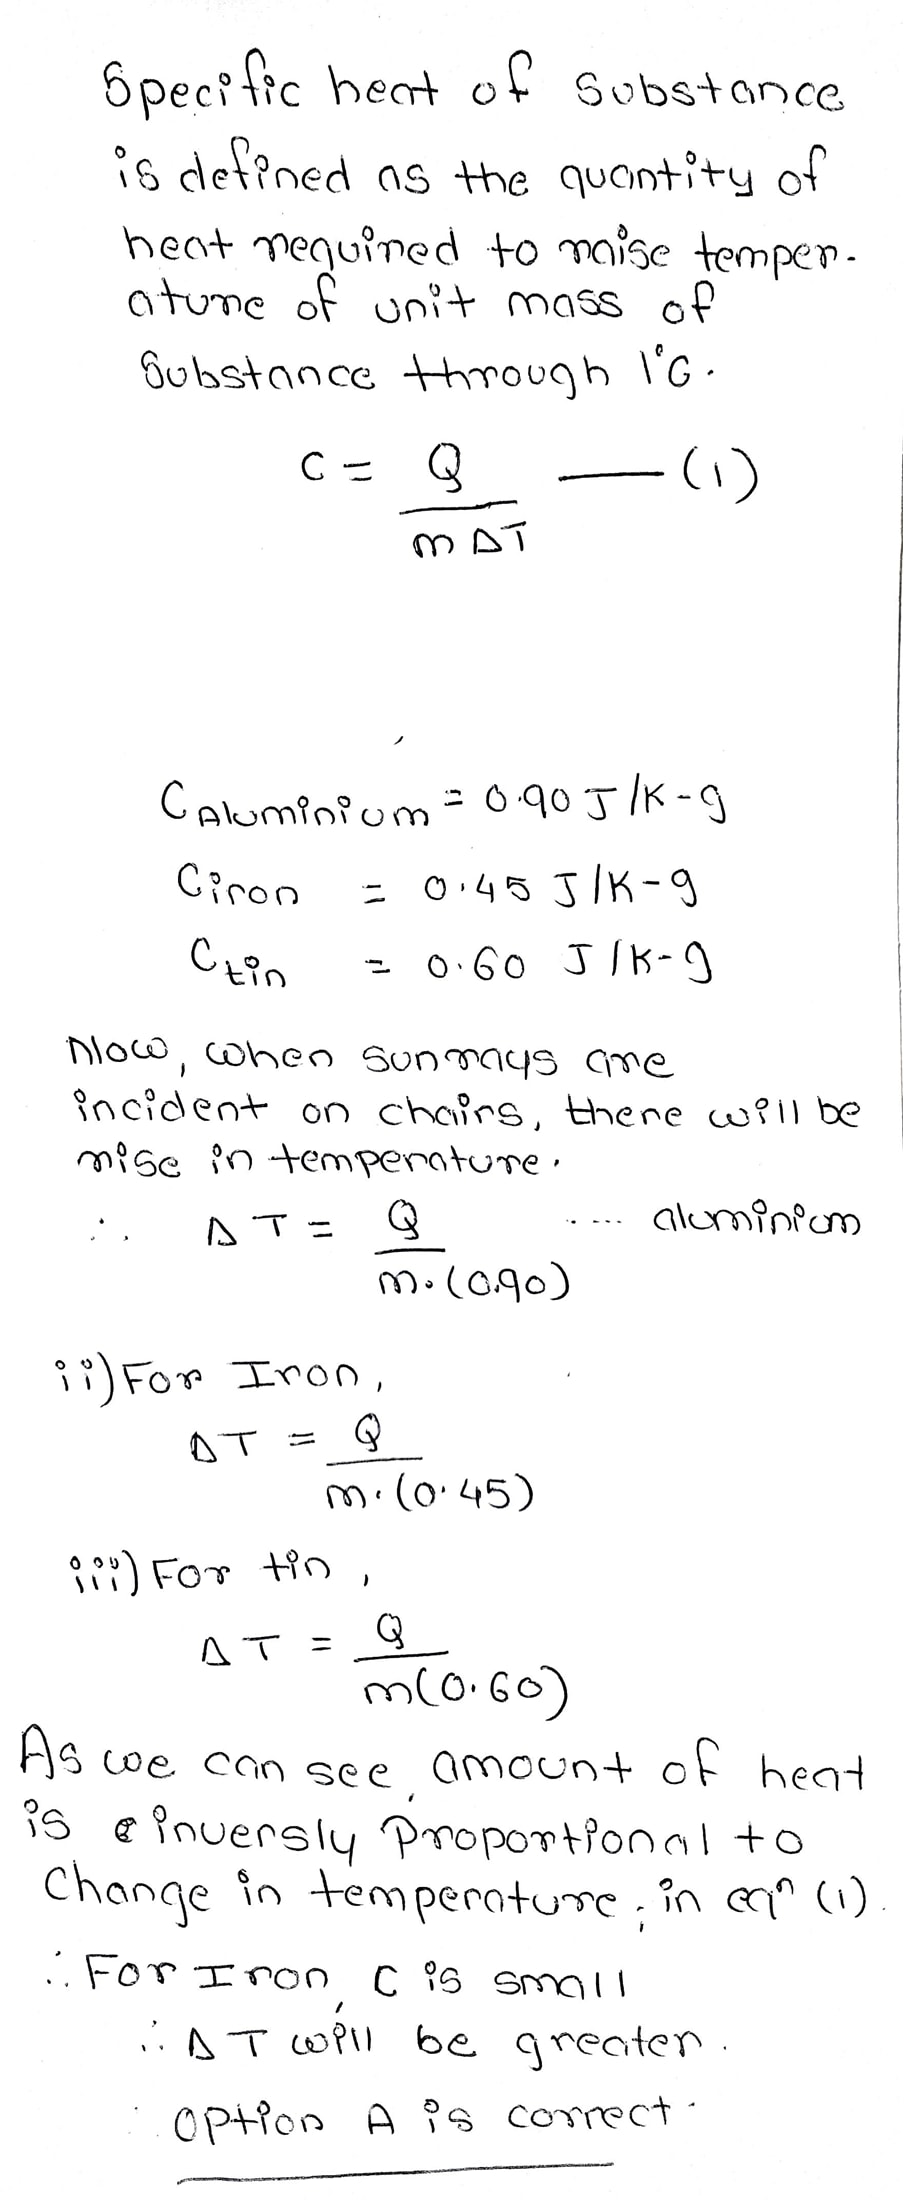 Specific heat of substance
is defined as the quantity of
heat required to raise temper-
ature of unit mass of
Substance through 1°C.
C = Q / mΔT — (1)
C Aluminium = 0.90 J/K-g
C iron = 0.45 J/K-g
C tin = 0.60 J/K-g
Now, when sunrays are
incident on chairs, there will be
rise in temperature.
∴ ΔT = Q / m.(0.90) ..... aluminium
ii) For Iron,
ΔT = Q / m.(0.45)
iii) For tin,
ΔT = Q / m(0.60)
As we can see, amount of heat
is inversly proportional to
change in temperature, in eqn (1).
∴ For Iron, C is small
∴ ΔT will be greater.
∴ Option A is correct.